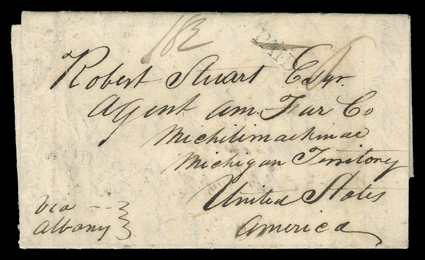 182
Robert Stuart Esqr.
Agent Am Fur Co
Michilimackinac
Michigan Territory
United States
America
via
Albany